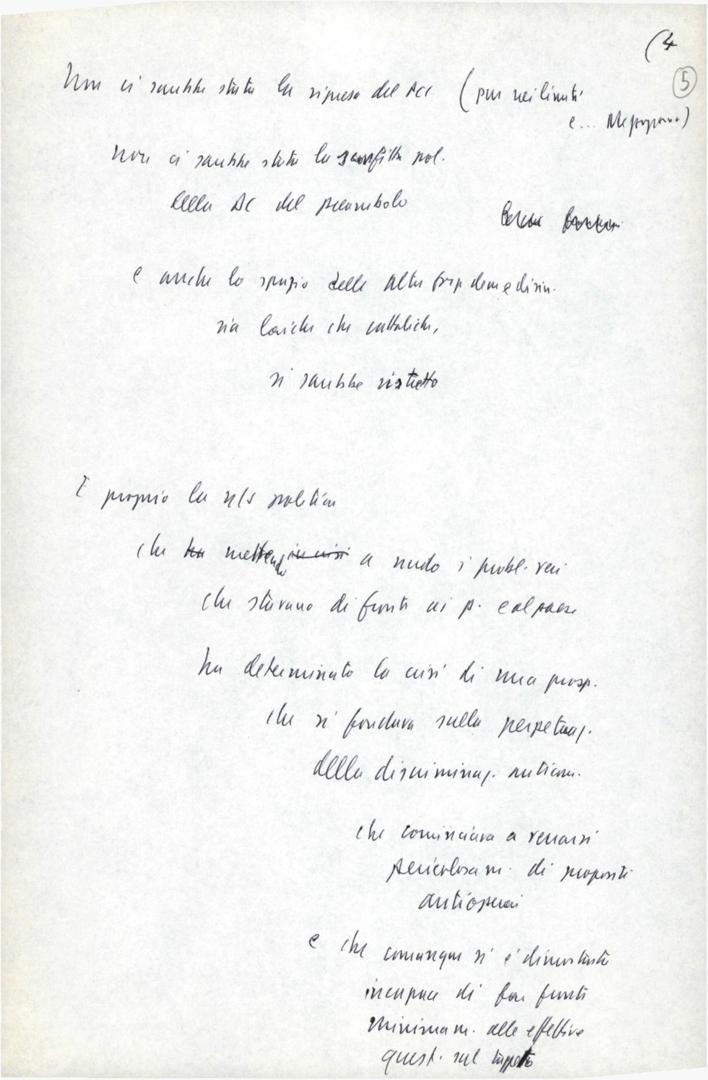 (4
5
Non ci sarebbe stata la ripresa del PCI (pur nei limiti
e...
non ci sarebbe stata la sconfitta pol.
della DC del preambolo
e anche lo spazio delle altre
sia laiche che cattoliche,
si sarebbe ristretto
È proprio la n/s politica
che ha mettendo in crisi a nudo i probl. veri
che stavano di fronte ai p. e al paese
ha determinato la crisi di una prosp.
che si fondava sulla perpetuaz.
della discriminaz. anticom.
che cominciava a venarsi
pericolosam. di propositi
antioperai
e che comunque si è dimostrata
incapace di far fronte
minimam. alle effettive
quest. sul tappeto